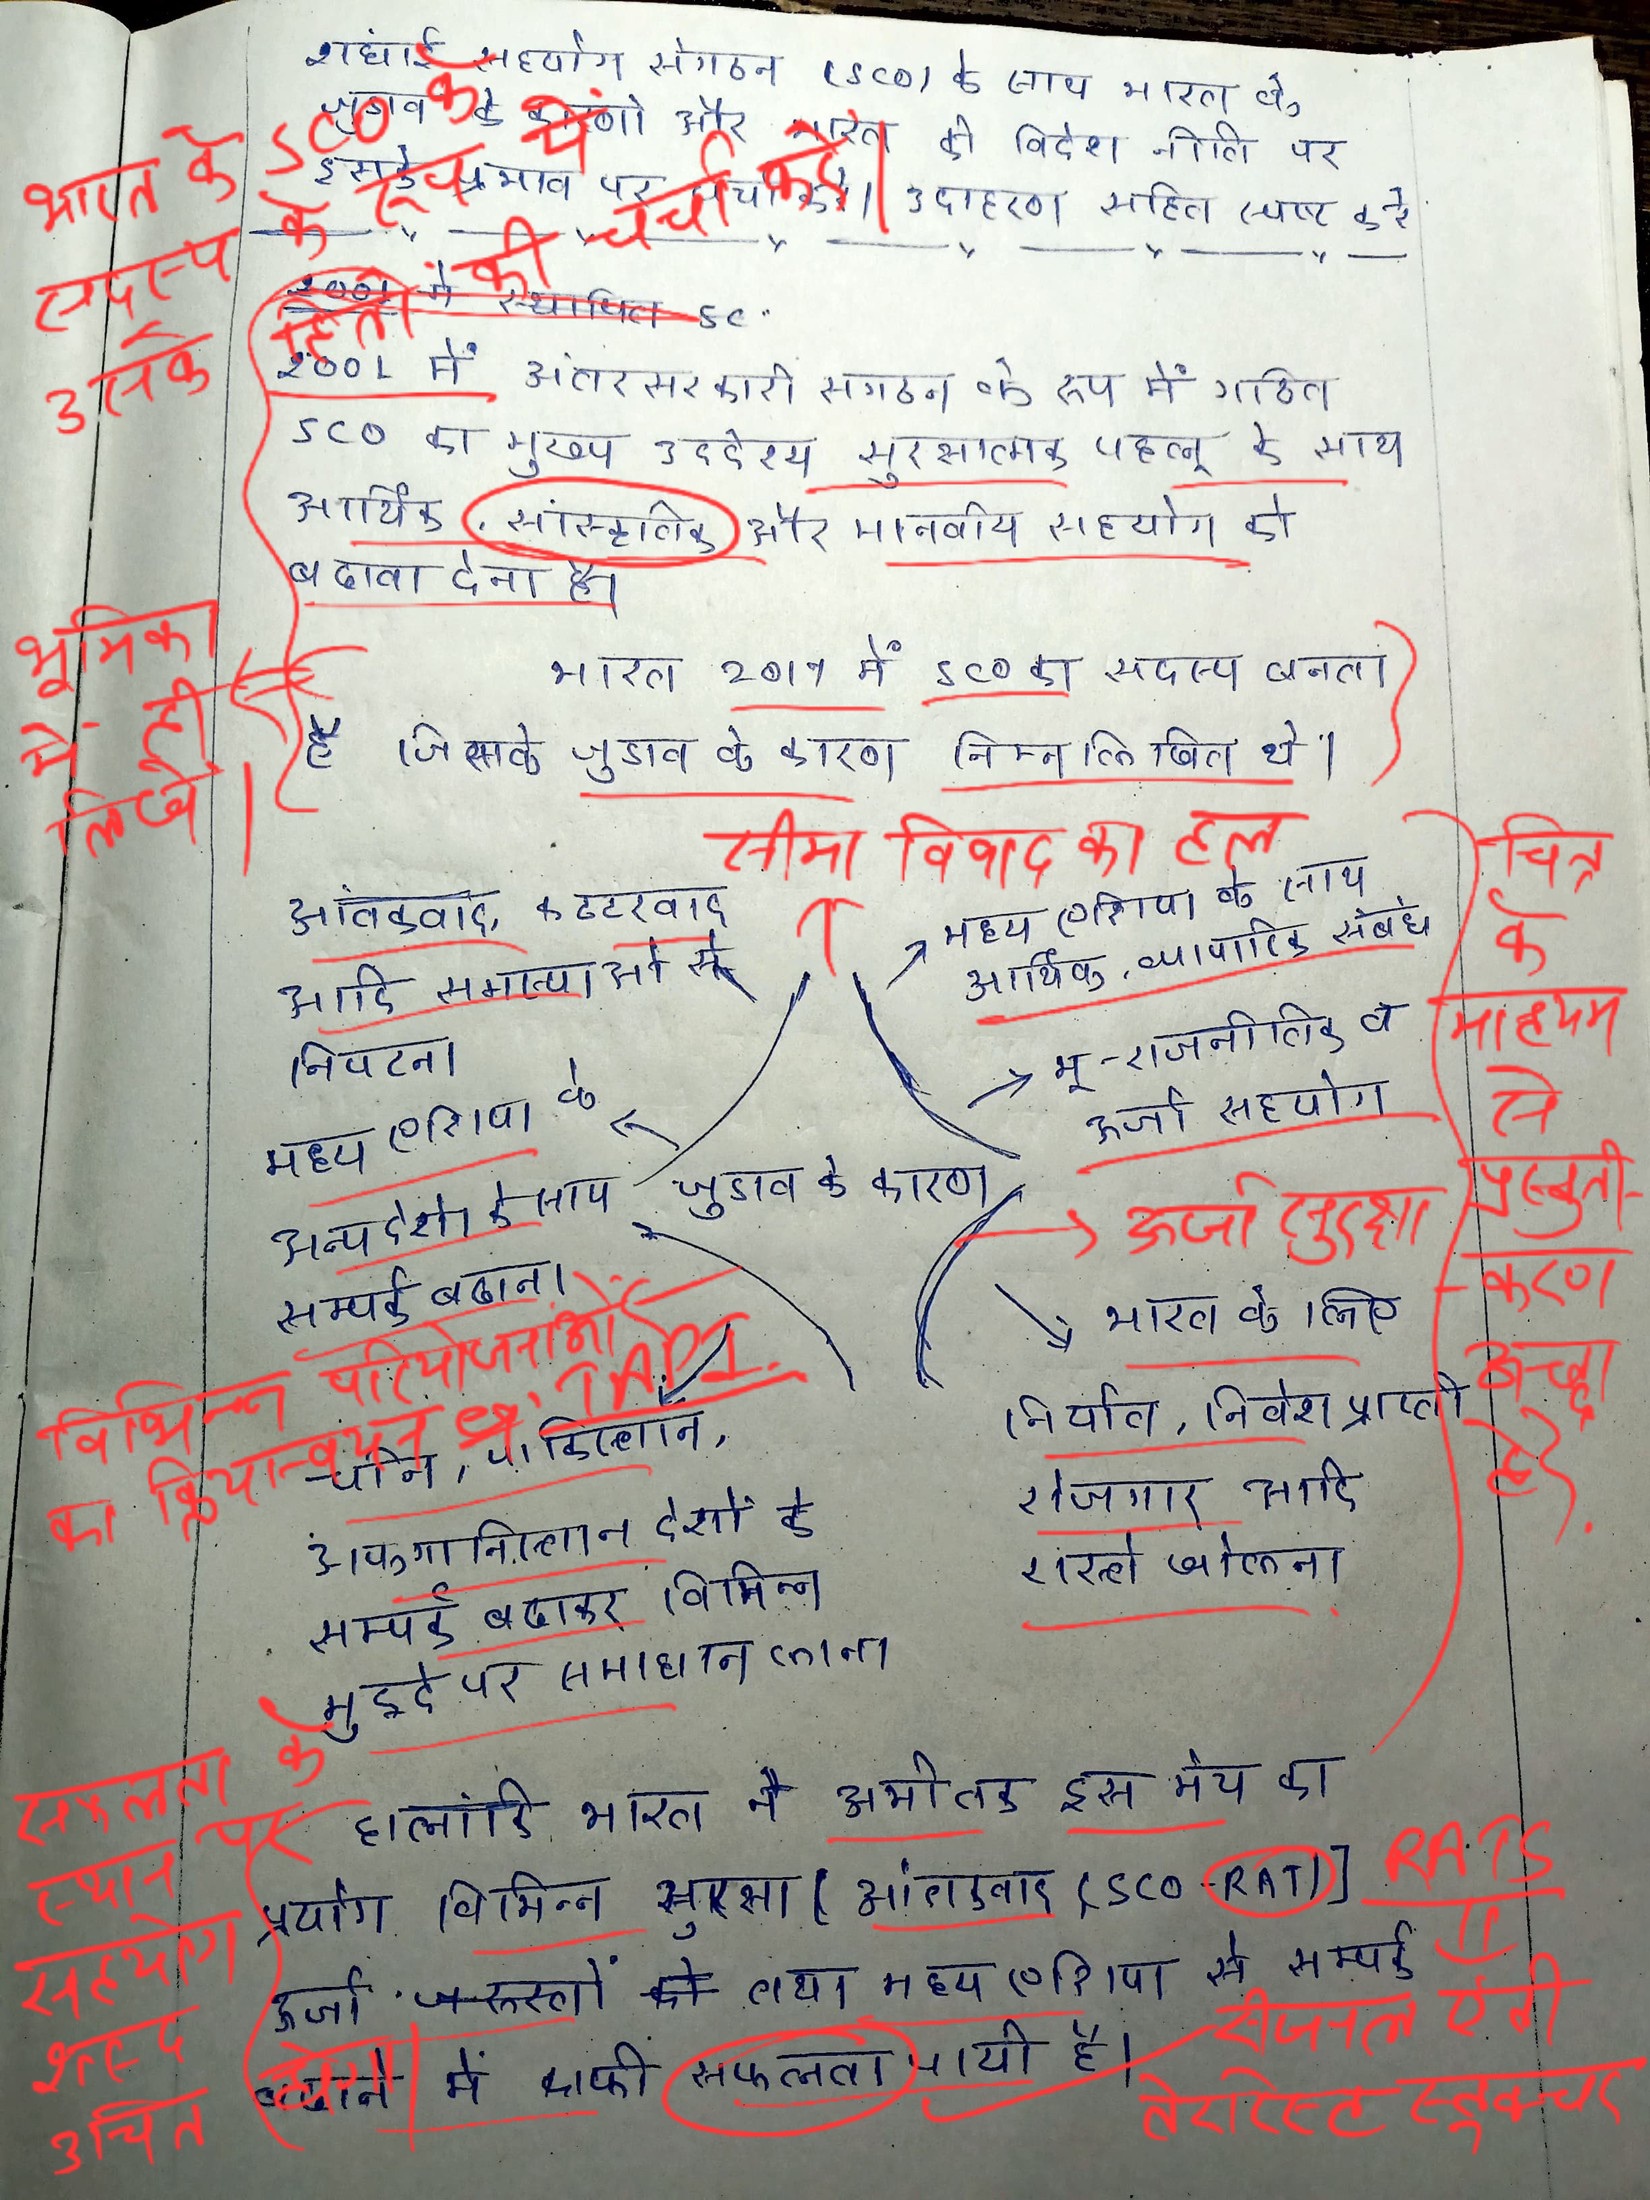 शंघाई सहयोग संगठन (SCO) के साथ भारत के
जुडाव के कारणो और भारत की विदेश नीति पर
इसके प्रभाव पर चर्चा करे। उदाहरण सहित स्पष्ट करे
भारत के SCO के
सदस्य के रूप में
उसके हितों की चर्चा करें।
2001 में स्थापित SC
2001 में अंतरसरकारी सगठन के रूप में गठित
SCO का मुख्य उददेश्य सुरक्षात्मक पहलू के साथ
आर्थिक, सांस्कृतिक और मानवीय सहयोग को
बढावा देना है।
भूमिका
में ही
लिखें।
भारत 2017 में SCO का सदस्य बनता
है जिसके जुडाव के कारण निम्नलिखित थे।
सीमा विवाद का हल
आंतकवाद, कटटरवाद
आदि समास्याओ से
निपटना
मध्य एशिया के साथ
आर्थिक, व्यापारिक संबंध
भू-राजनीतिक व
ऊर्जा सहयोग
मध्य एशिया के
अन्य देशो के साथ
सम्पर्क बढाना
जुडाव के कारण
ऊर्जा सुरक्षा
विभिन्न परियोजनाओं
का क्रियान्वयन Ex. TAPI.
भारत के लिए
निर्यात, निवेश प्राप्ती
रोजगार आदि
रास्ते खोलना
चीन, पाकिस्तान,
अफगानिस्तान देशों के
सम्पर्क बढाकर विभिन्न
मुद्दे पर समाधान लाना
चित्र
के
माध्यम
से
प्रस्तुती-
करण
अच्छा
है।
हालांकि भारत ने अभीतक इस मंच का
प्रयोग विभिन्न सुरक्षा [आंतकवाद (SCO-RAT)]
ऊर्जा जरूरतों को तथा मध्य एशिया से सम्पर्क
बढाने में काफी सफलता पायी है।
सफलता के
स्थान पर
सहयोग
शब्द
उचित
होगा।
RATS
रीजनल एंटी
टेररिस्ट स्ट्रक्चर